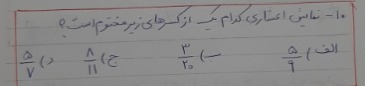 ۱۰- نمایش اعشاری کدام یک از کسرهای زیر مختوم است؟
الف) ۵/۹ ب) ۳/۲۰ ج) ۸/۱۱ د) ۵/۷